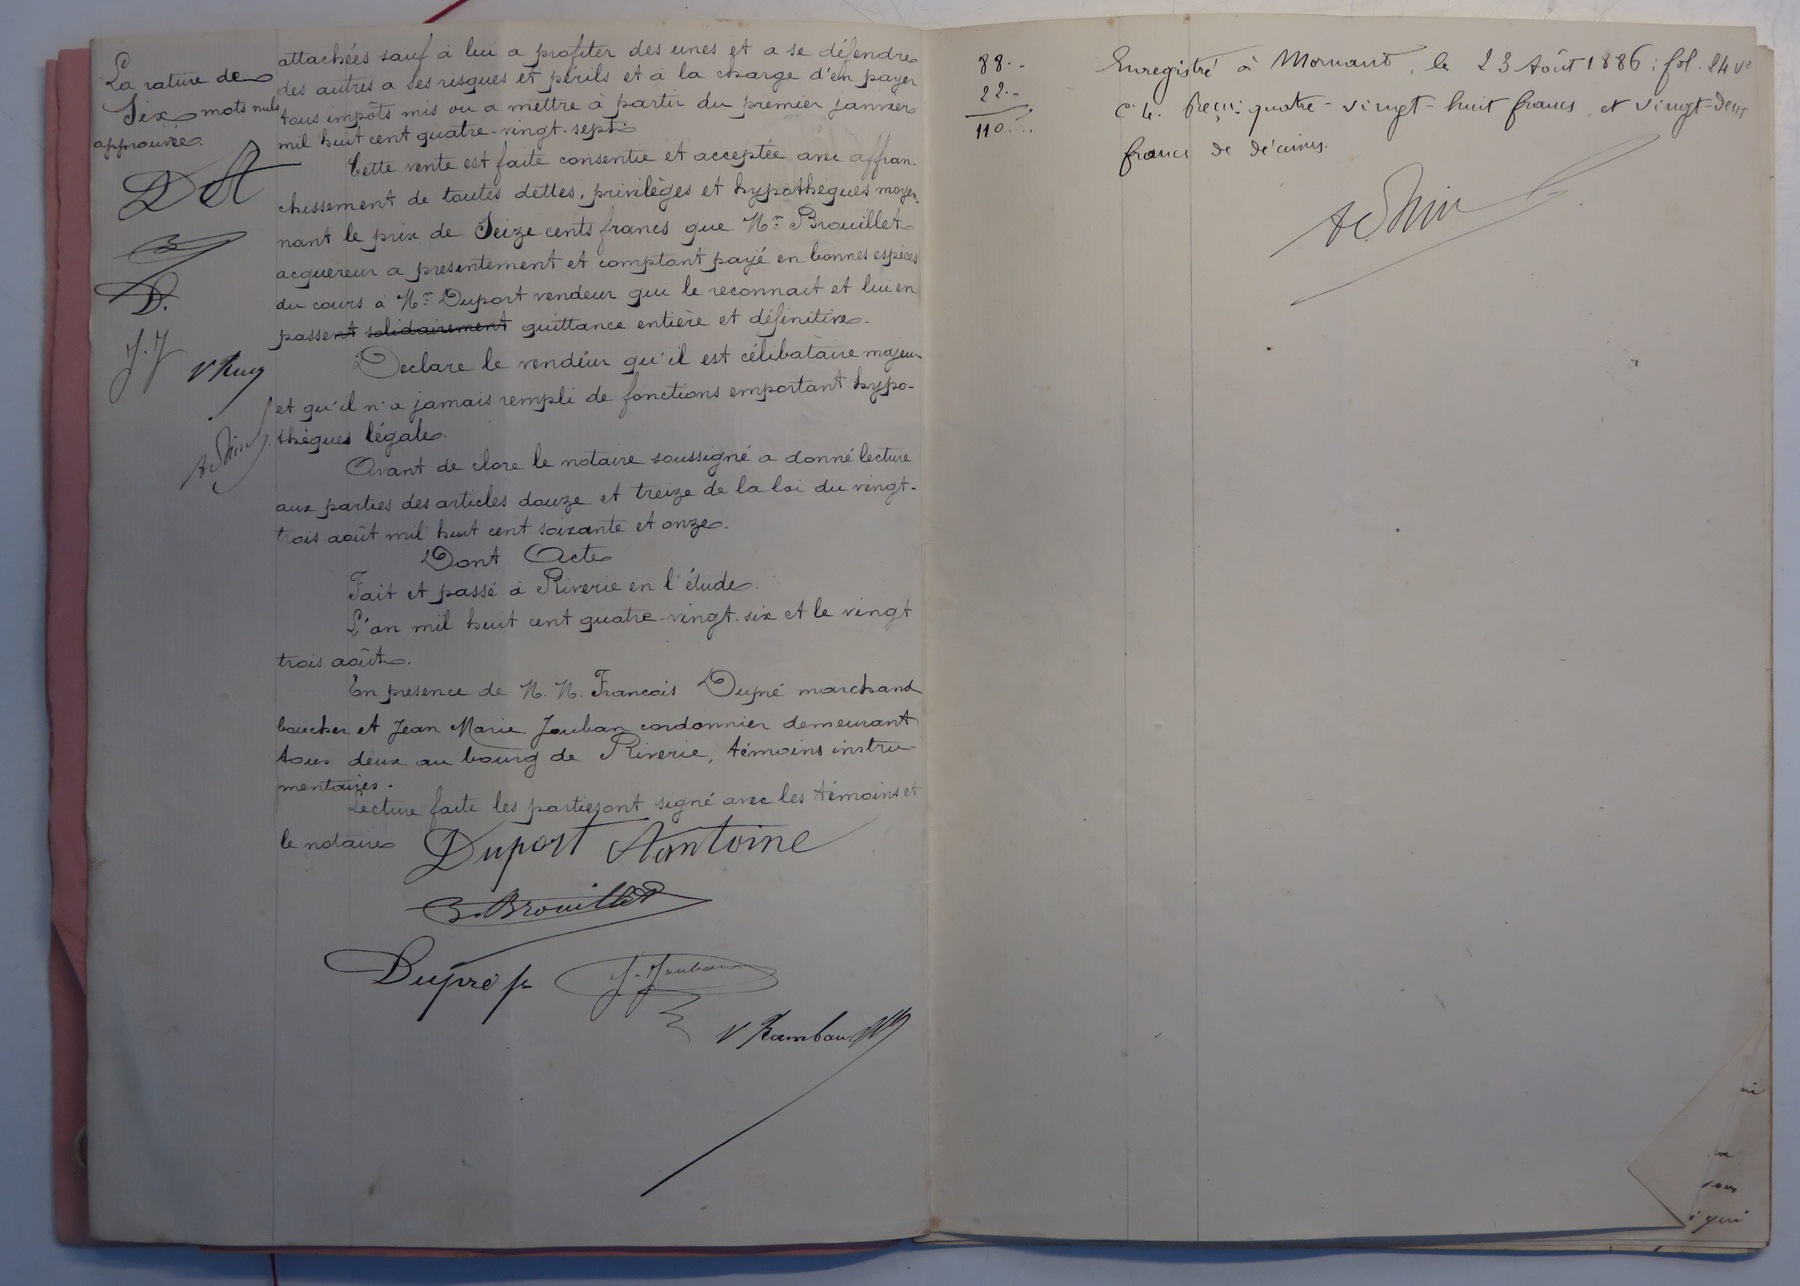 La rature de
Six mots nuls
approuvée.
DA
B
D.
J. J
attachées sauf à lui a profiter des unes et a se défendre
des autres a ses risques et périls et à la charge d'en payer
tous impôts mis ou a mettre à partir du premier janvier
mil huit cent quatre-vingt-sept.
Cette vente est faite consentie et acceptée avec affran-
chissement de toutes dettes, privilèges et hypothèques moyen-
nant le prix de Seize cents francs que Mr Brouillet
acquereur a presentement et comptant payé en bonnes espèces
du cours à Mr Duport vendeur qui le reconnait et lui en
passent solidairement quittance entière et définitive.
Declare le vendeur qu'il est célibataire majeur
et qu'il n'a jamais rempli de fonctions emportant hypo-
thèques légale.
Avant de clore le notaire soussigné a donné lecture
aux parties des articles douze et treize de la loi du vingt-
trois août mil huit cent soixante et onze.
Dont Acte
Fait et passé à Riverie en l'étude.
L'an mil huit cent quatre-vingt-six et le vingt
trois août.
En presence de M. M. Francois Dupré marchand
boucher et Jean Marie Jouban cordonnier demeurant
tous deux au bourg de Riverie, témoins instru-
mentaires.
Lecture faite les parties ont signé avec les témoins et
le notaire
Duport Antoine
Brouillet
Dupré fr
J. Jouban
V Rambaud
88..
22..
110...
Enregistré à Mornant, le 23 Août 1886; fol. 24 vo
c. 4. Reçu: quatre-vingt-huit francs, et vingt-deux
francs de décimes.
i qui